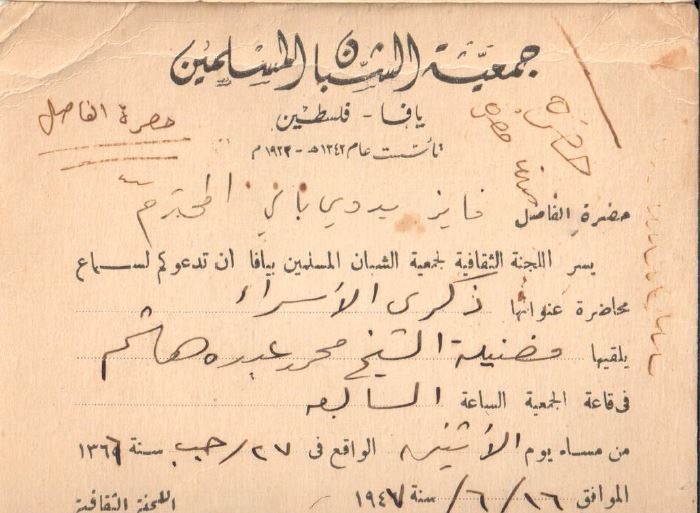 جمعية الشبان المسلمين
يافا - فلسطين
تأسست عام ١٣٤٢ هـ - ١٩٢٣ م
حضرة الفاضل
حضرة
حضرة الفاضل فايز بدوي المحترم
يسر اللجنة الثقافية لجمعية الشبان المسلمين بيافا ان تدعوكم لسماع
محاضرة عنوانها ذكرى الأسراء
يلقيها فضيلة الشيخ محمد عبده هاشم
في قاعة الجمعية الساعة السابعه
من مساء يوم الأثنين الواقع في ٢٧ / رجب سنة ١٣٦٦
الموافق ١٦ / ٦ / سنة ١٩٤٧
اللجنة الثقافية